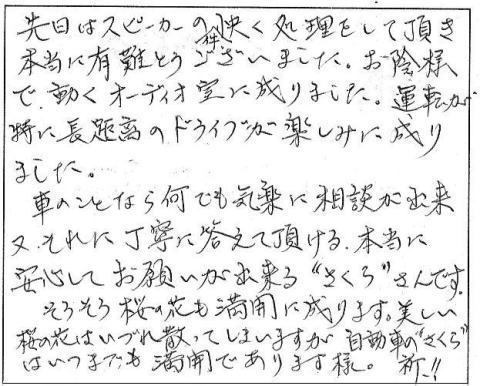 先日はスピーカーの件快く処理をして頂き
本当に有難とうございました。お陰様
で、動くオーディオ室に成りました。運転が
特に長距離のドライブが楽しみに成り
ました。
車のことなら何でも気楽に相談が出来
又、それに丁寧に答えて頂ける、本当に
安心してお願いが出来る“さくら”さんです。
そろそろ桜の花も満開に成ります。美しい
桜の花はいづれ散ってしまいますが 自動車の“さくら”
はいつまでも満開であります様。 祈!!